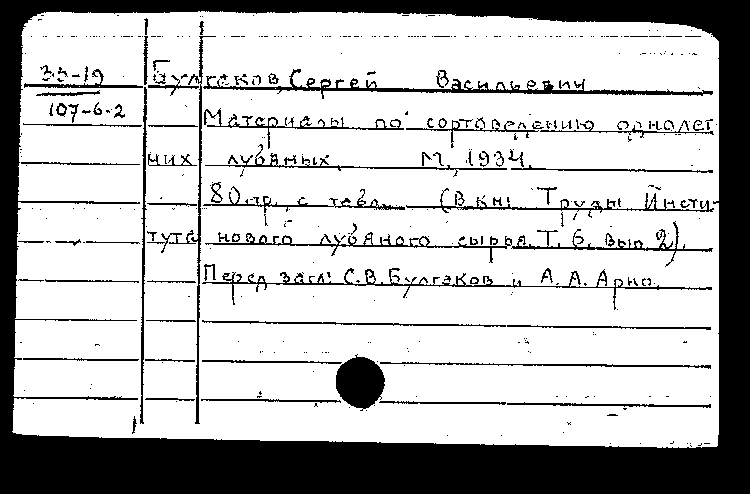 35-19
107-6-2
Булгаков, Сергей Васильевич
Материалы по сортоведению однолет
них лубяных. М., 1934.
80 стр. с табл. (В кн: Труды Инсти-
тута нового лубяного сырья. Т. 6. вып. 2).
Перед загл: С.В. Булгаков и А. А. Арно.